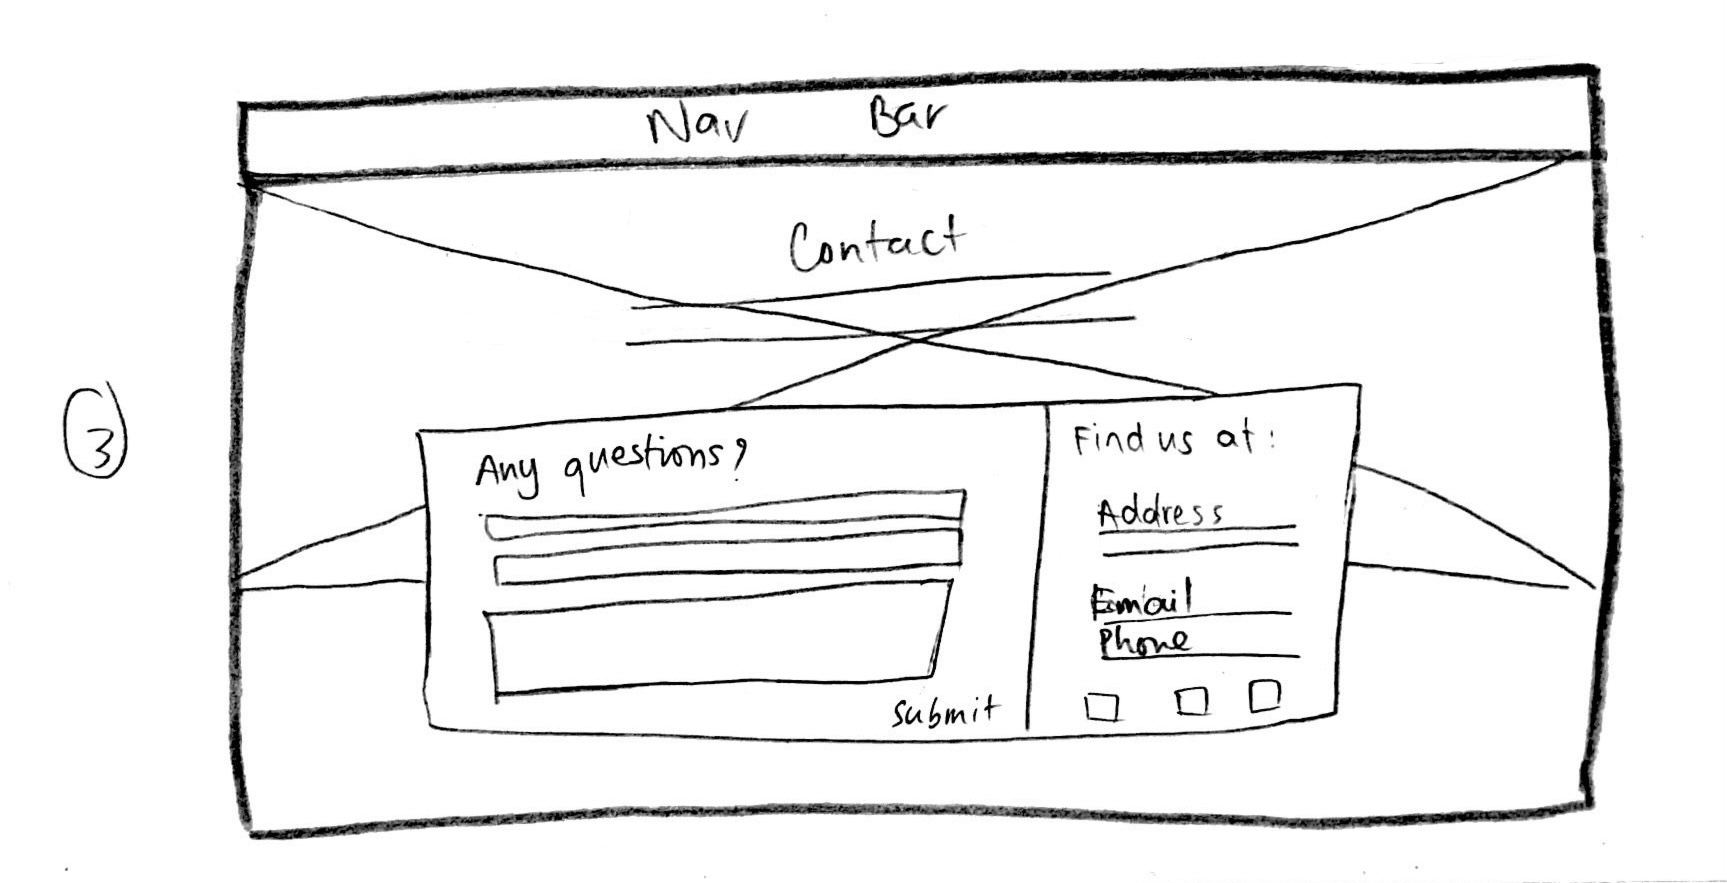 Nav Bar
Contact
3
Any questions?
Submit
Find us at:
Address
Email
Phone